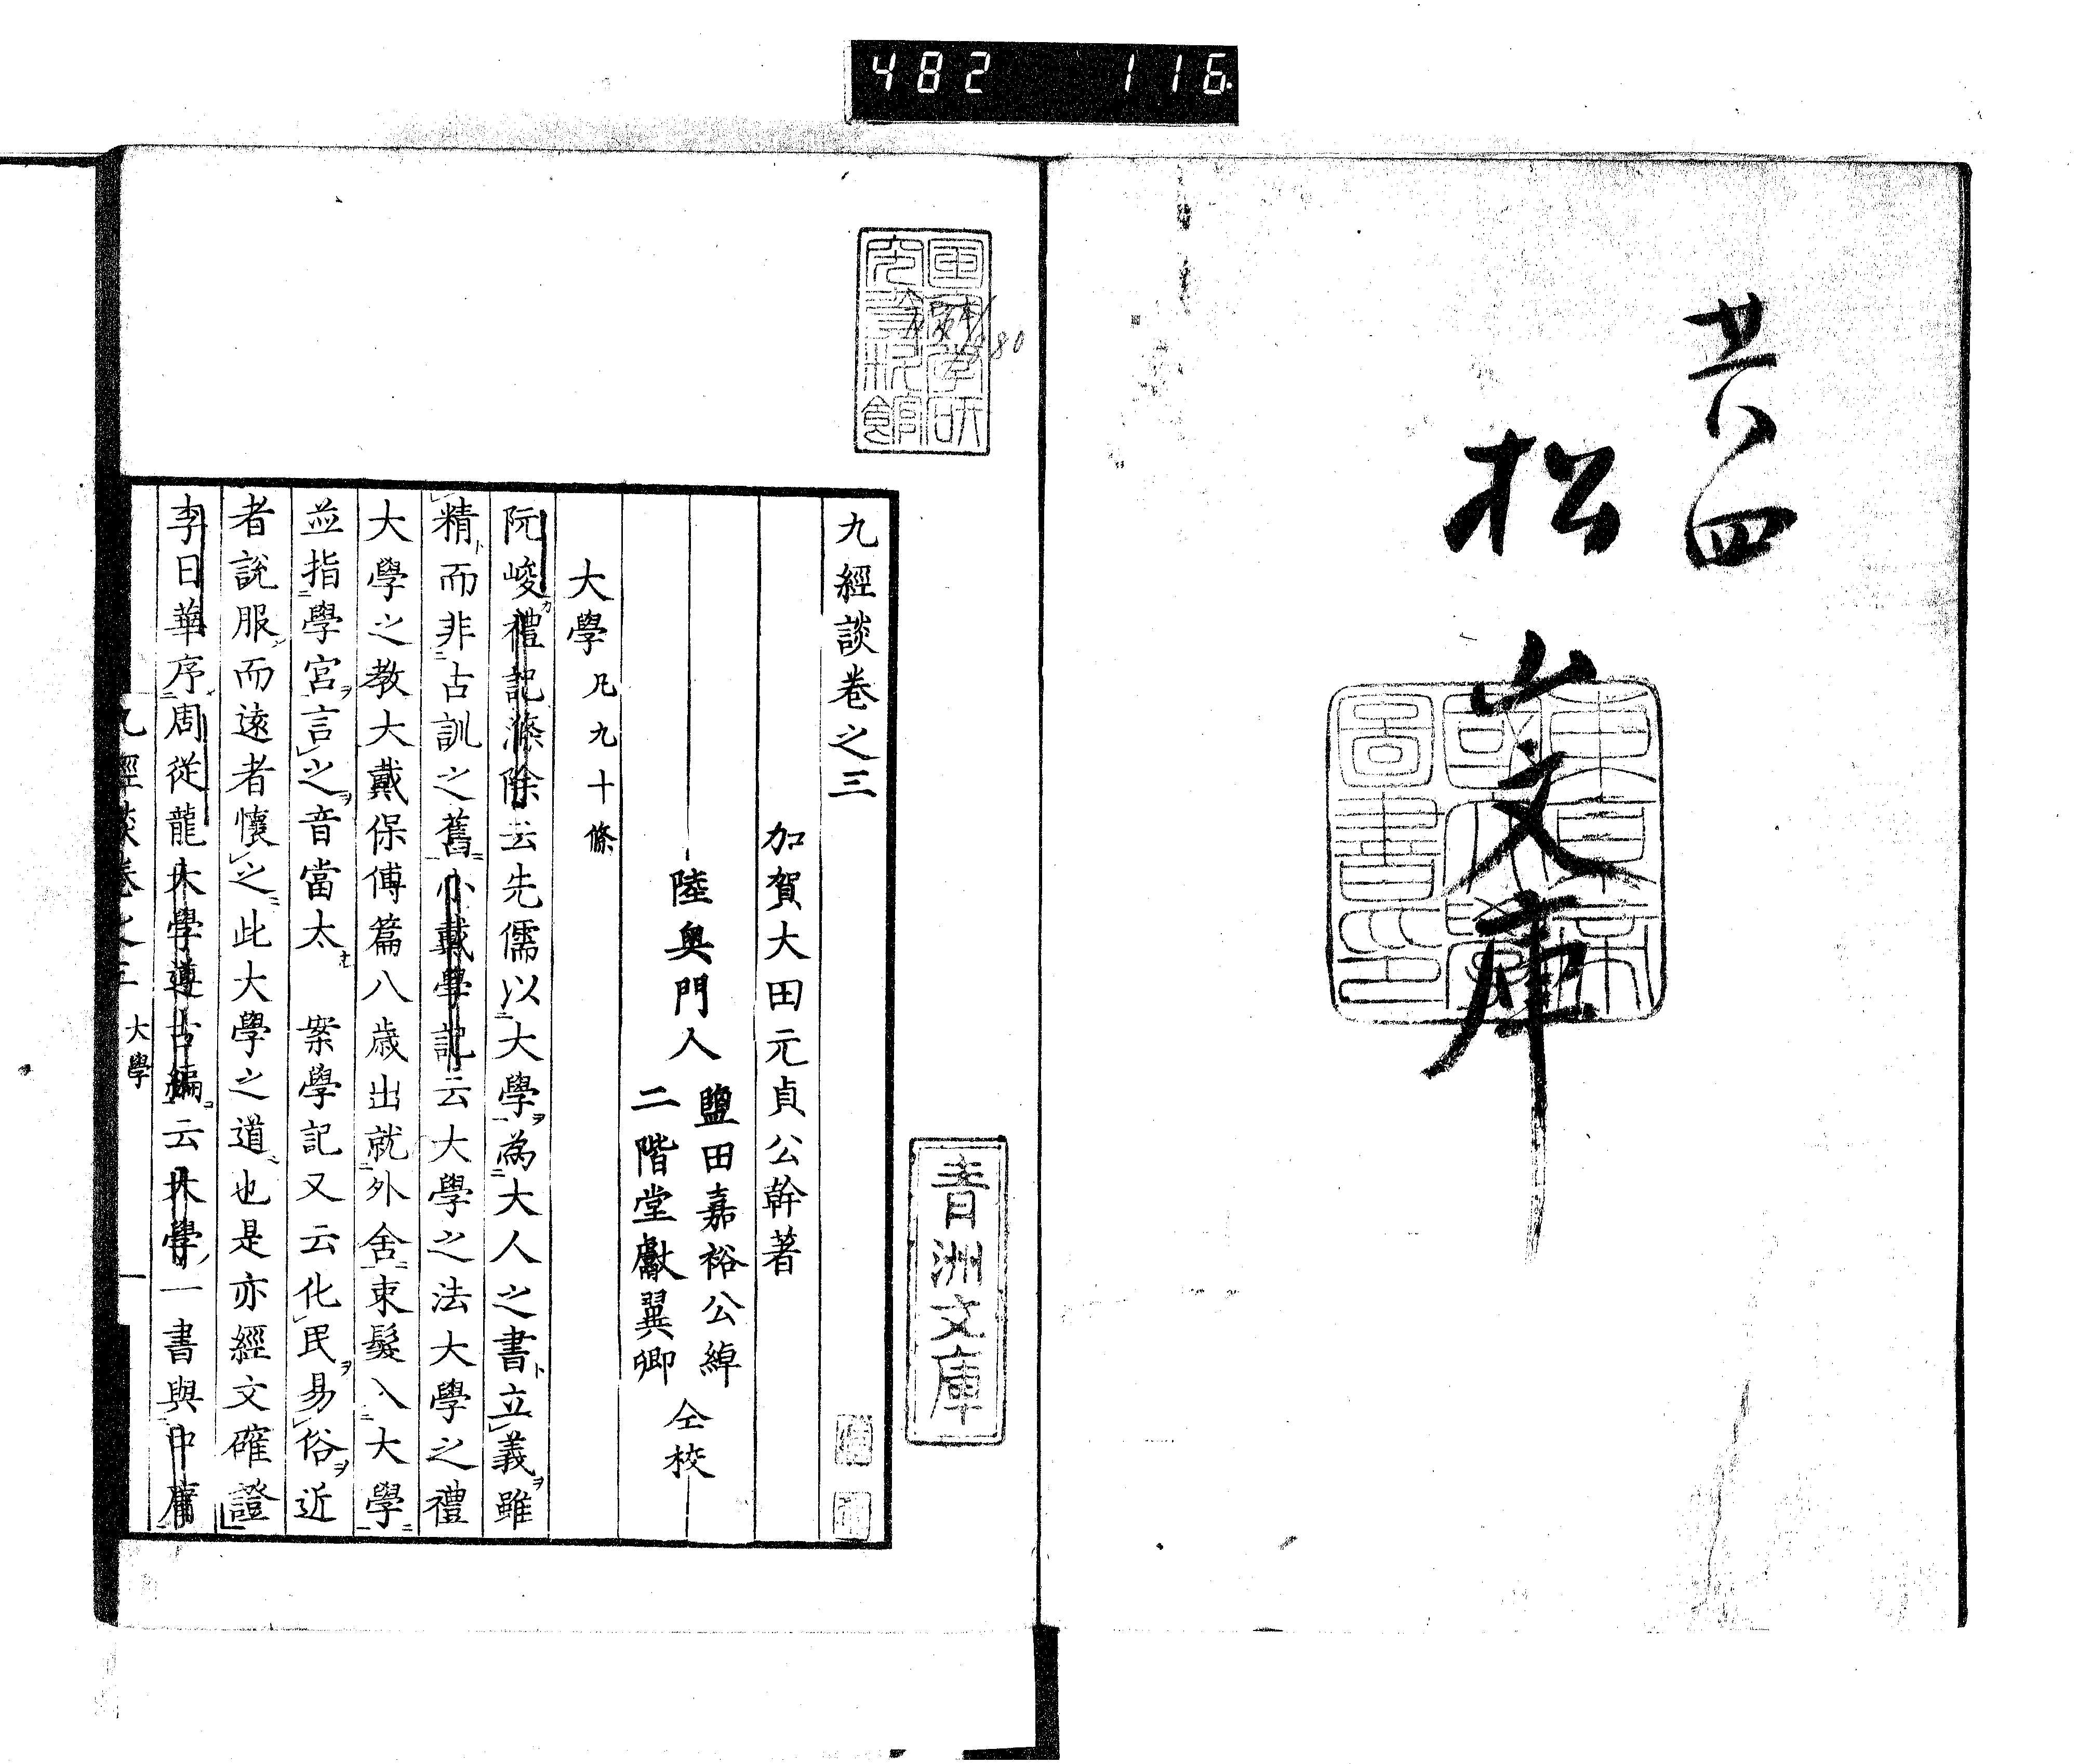 482 116
共四
松山文庫
東京帝國大學圖書印
國文學研究資料館
青洲文庫
九經談卷之三
加賀大田元貞公幹著
陸奥門人 鹽田嘉裕公綽 二階堂獻翼卿 仝校
大學 凡九十條
阮峻禮記滌除云先儒以大學為大人之書立義雖
精而非古訓之舊小戴學記云大學之法大學之禮
大學之教大戴保傅篇八歳出就外舍束髮入大學
並指學宮言之音當太 案學記又云化民易俗近
者説服而遠者懷之此大學之道也是亦經文確證
李日華序周從龍大學遵古編云大學一書與中庸
九經談卷之三 大學 一